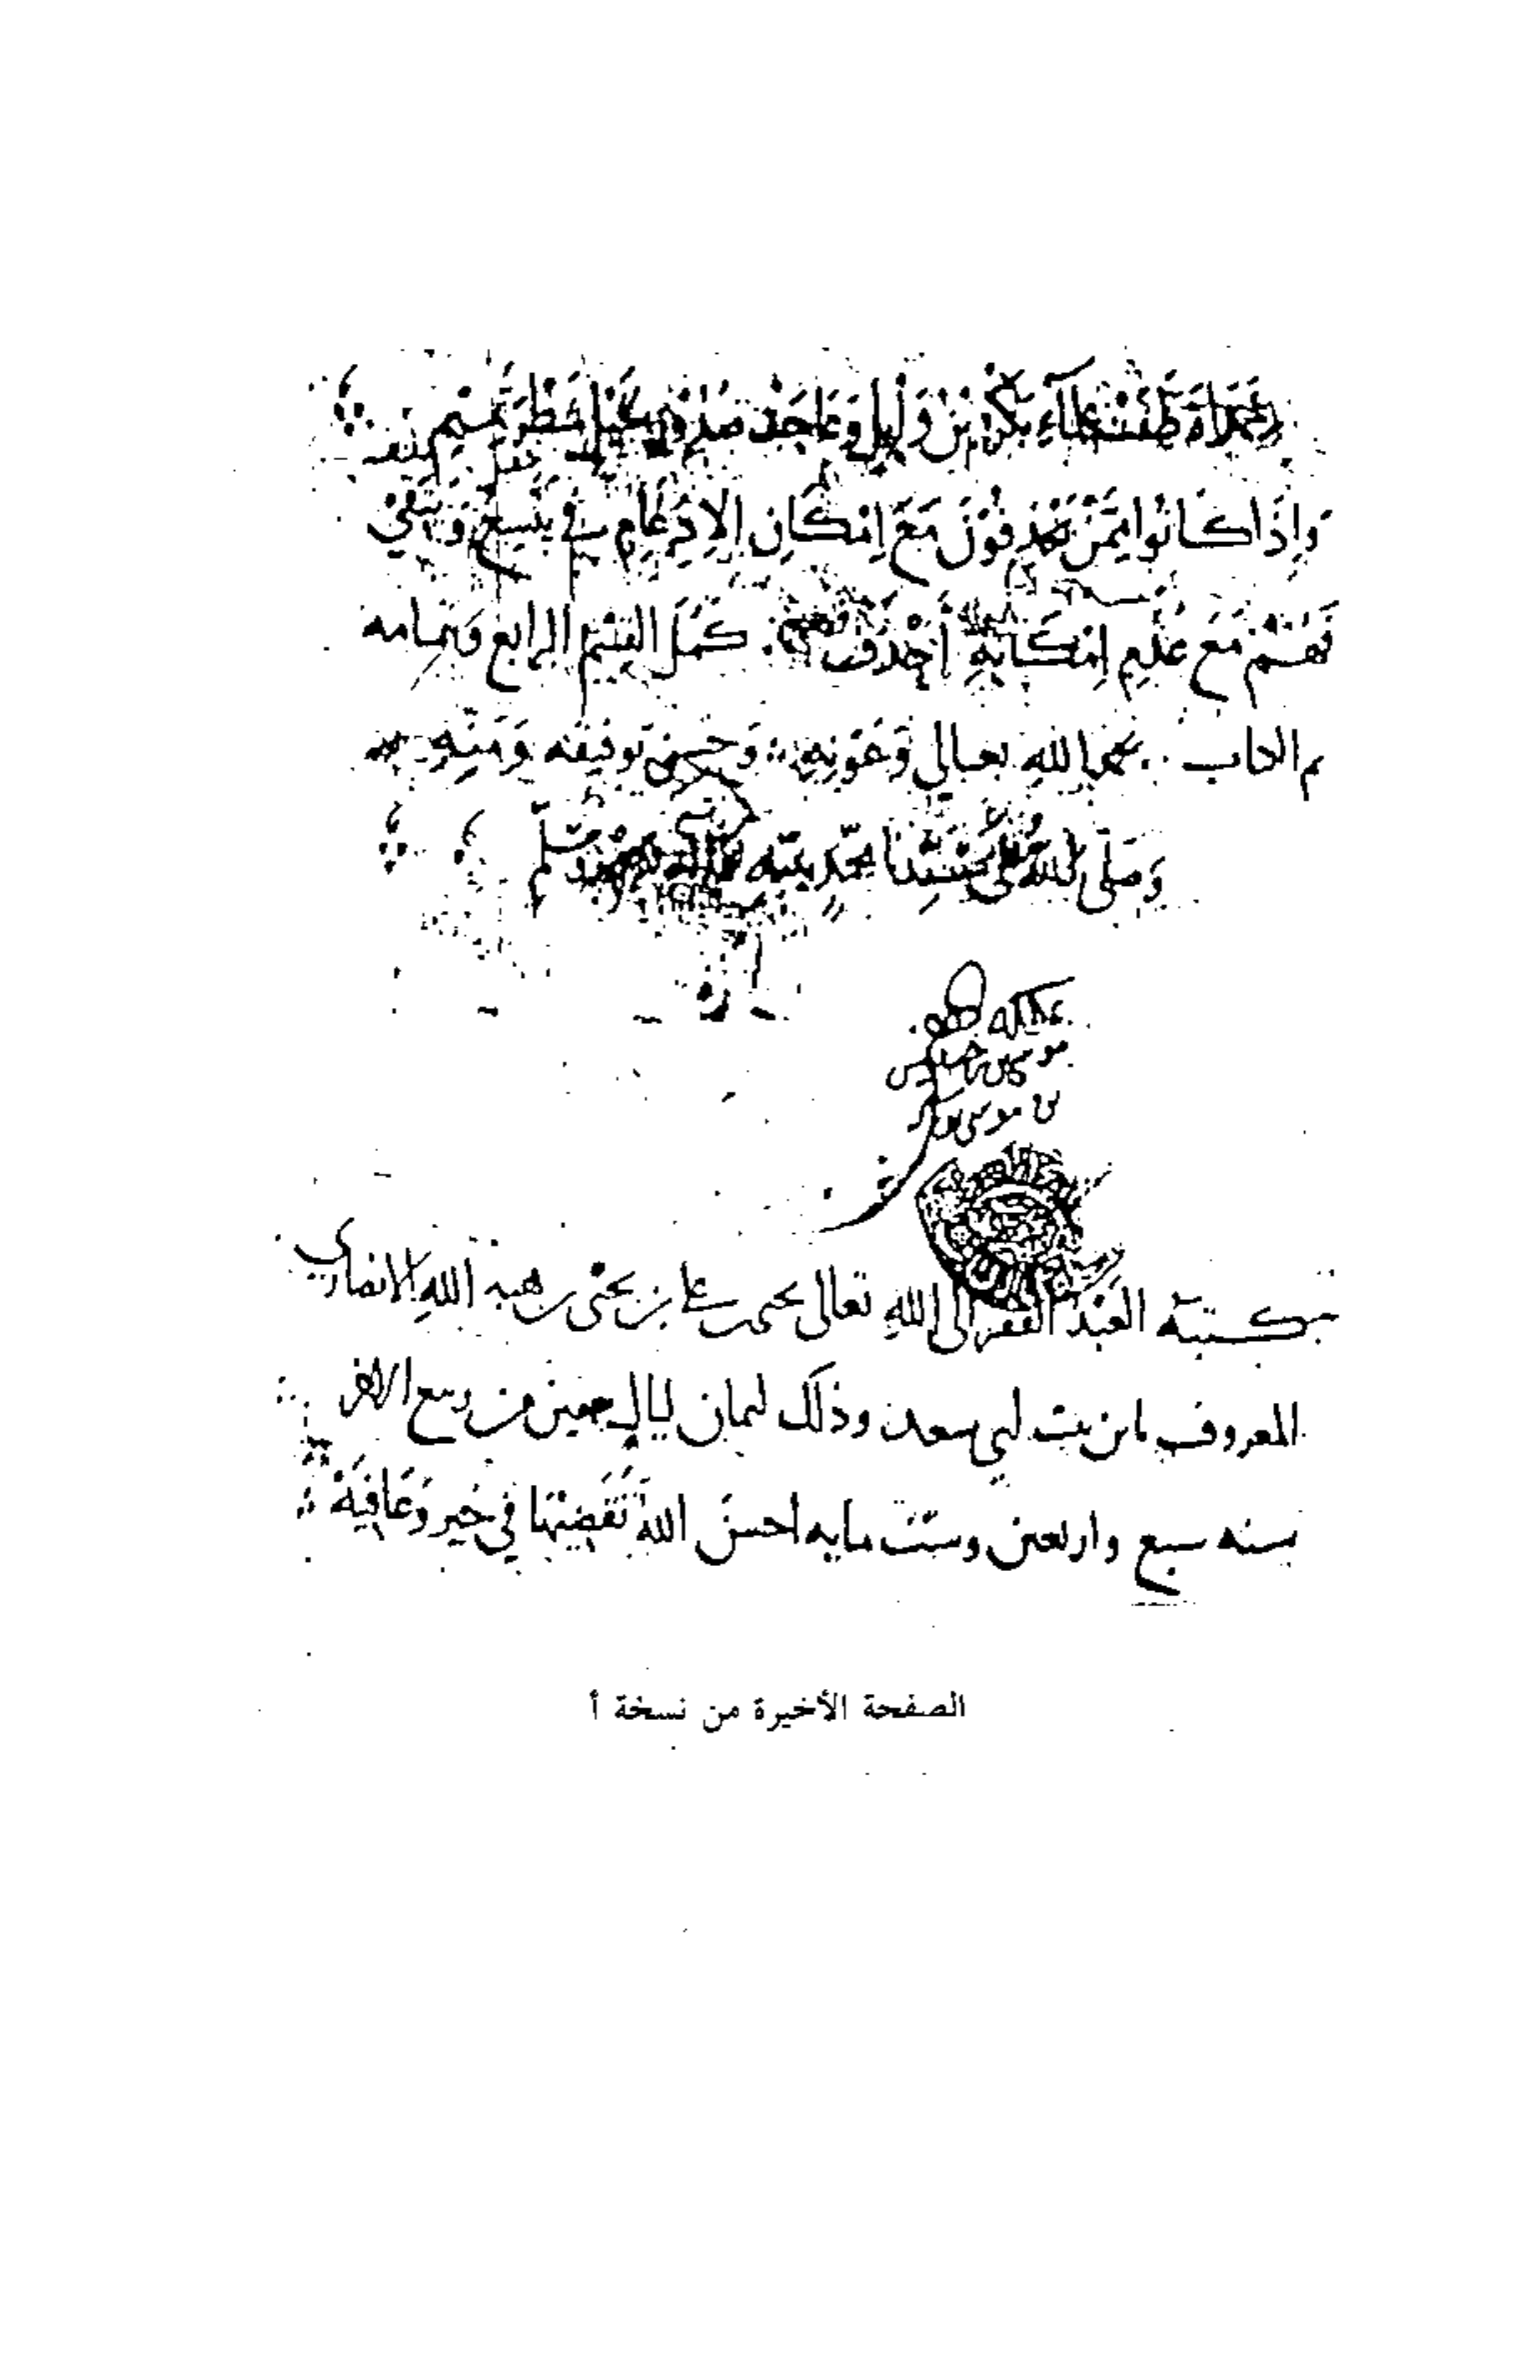 غداة طفت علماء بكر بن وائل وعاجت صدور الخيل شطر تميم
وَإِذَا كَانُوا مِمَّنْ يَحْذِفُونَ مَعَ اِمْكَانِ الاِدْغَامِ في يَتَّسِعُ وَيَتَّقِي
فَهُمْ مَعَ عَدَمِ اِمْكَانِهِ أَحْذَفُ كَمُلَ القِسْمُ الرابع وبتمامه
تم الكتاب بحمد اللهِ تعالى وَعَوْنِهِ وَحُسْنِ تَوفيقه وَمَنِّهِ
وَصَلَّى اللهُ عَلَى سَيِّدِنَا محمّدٍ نبيّه وآله وسلّم
كتبه العَبْد الفقير الى اللهِ تعالى يحيى بن علي بن يحيى بن هبة اللهِ الانصاري
المعروف بابن بنت ابي سعد وذلك لثمان ليال بقين من ربيع الاخر
سنه سبع واربعين وستمايه احسنَ اللهُ تَقَضِّيَهَا في خير وَعَافِيَةْ
الصفحة الأخيرة من نسخة أ